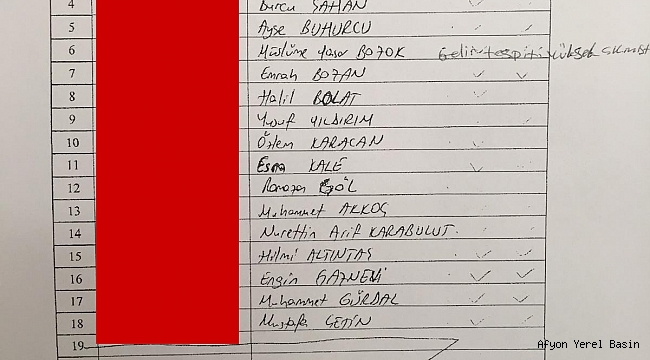 4 Burcu ŞAHAN
5 Ayşe BUHURCU
6 Müslüme Yaşar BOZOK Gelir tespiti yüksek çıkmıştır
7 Emrah BOZAN
8 Halil BOLAT
9 Yusuf YILDIRIM
10 Özlem KARACAN
11 Esma KALE
12 Ramazan
13 Muhammet AKKOÇ
14 Nurettin Arif KARABULUT.
15 Hilmi ALTINTAŞ
16 Engin GAZNEVİ
17 Muhammet GÜRDAL
18 Mustafa ÇETİN
19
Afyon Yerel Basin